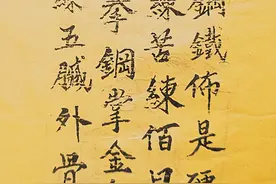 鋼鐵佈是硬
練苦練佰日
拳鋼掌金
五臟外骨